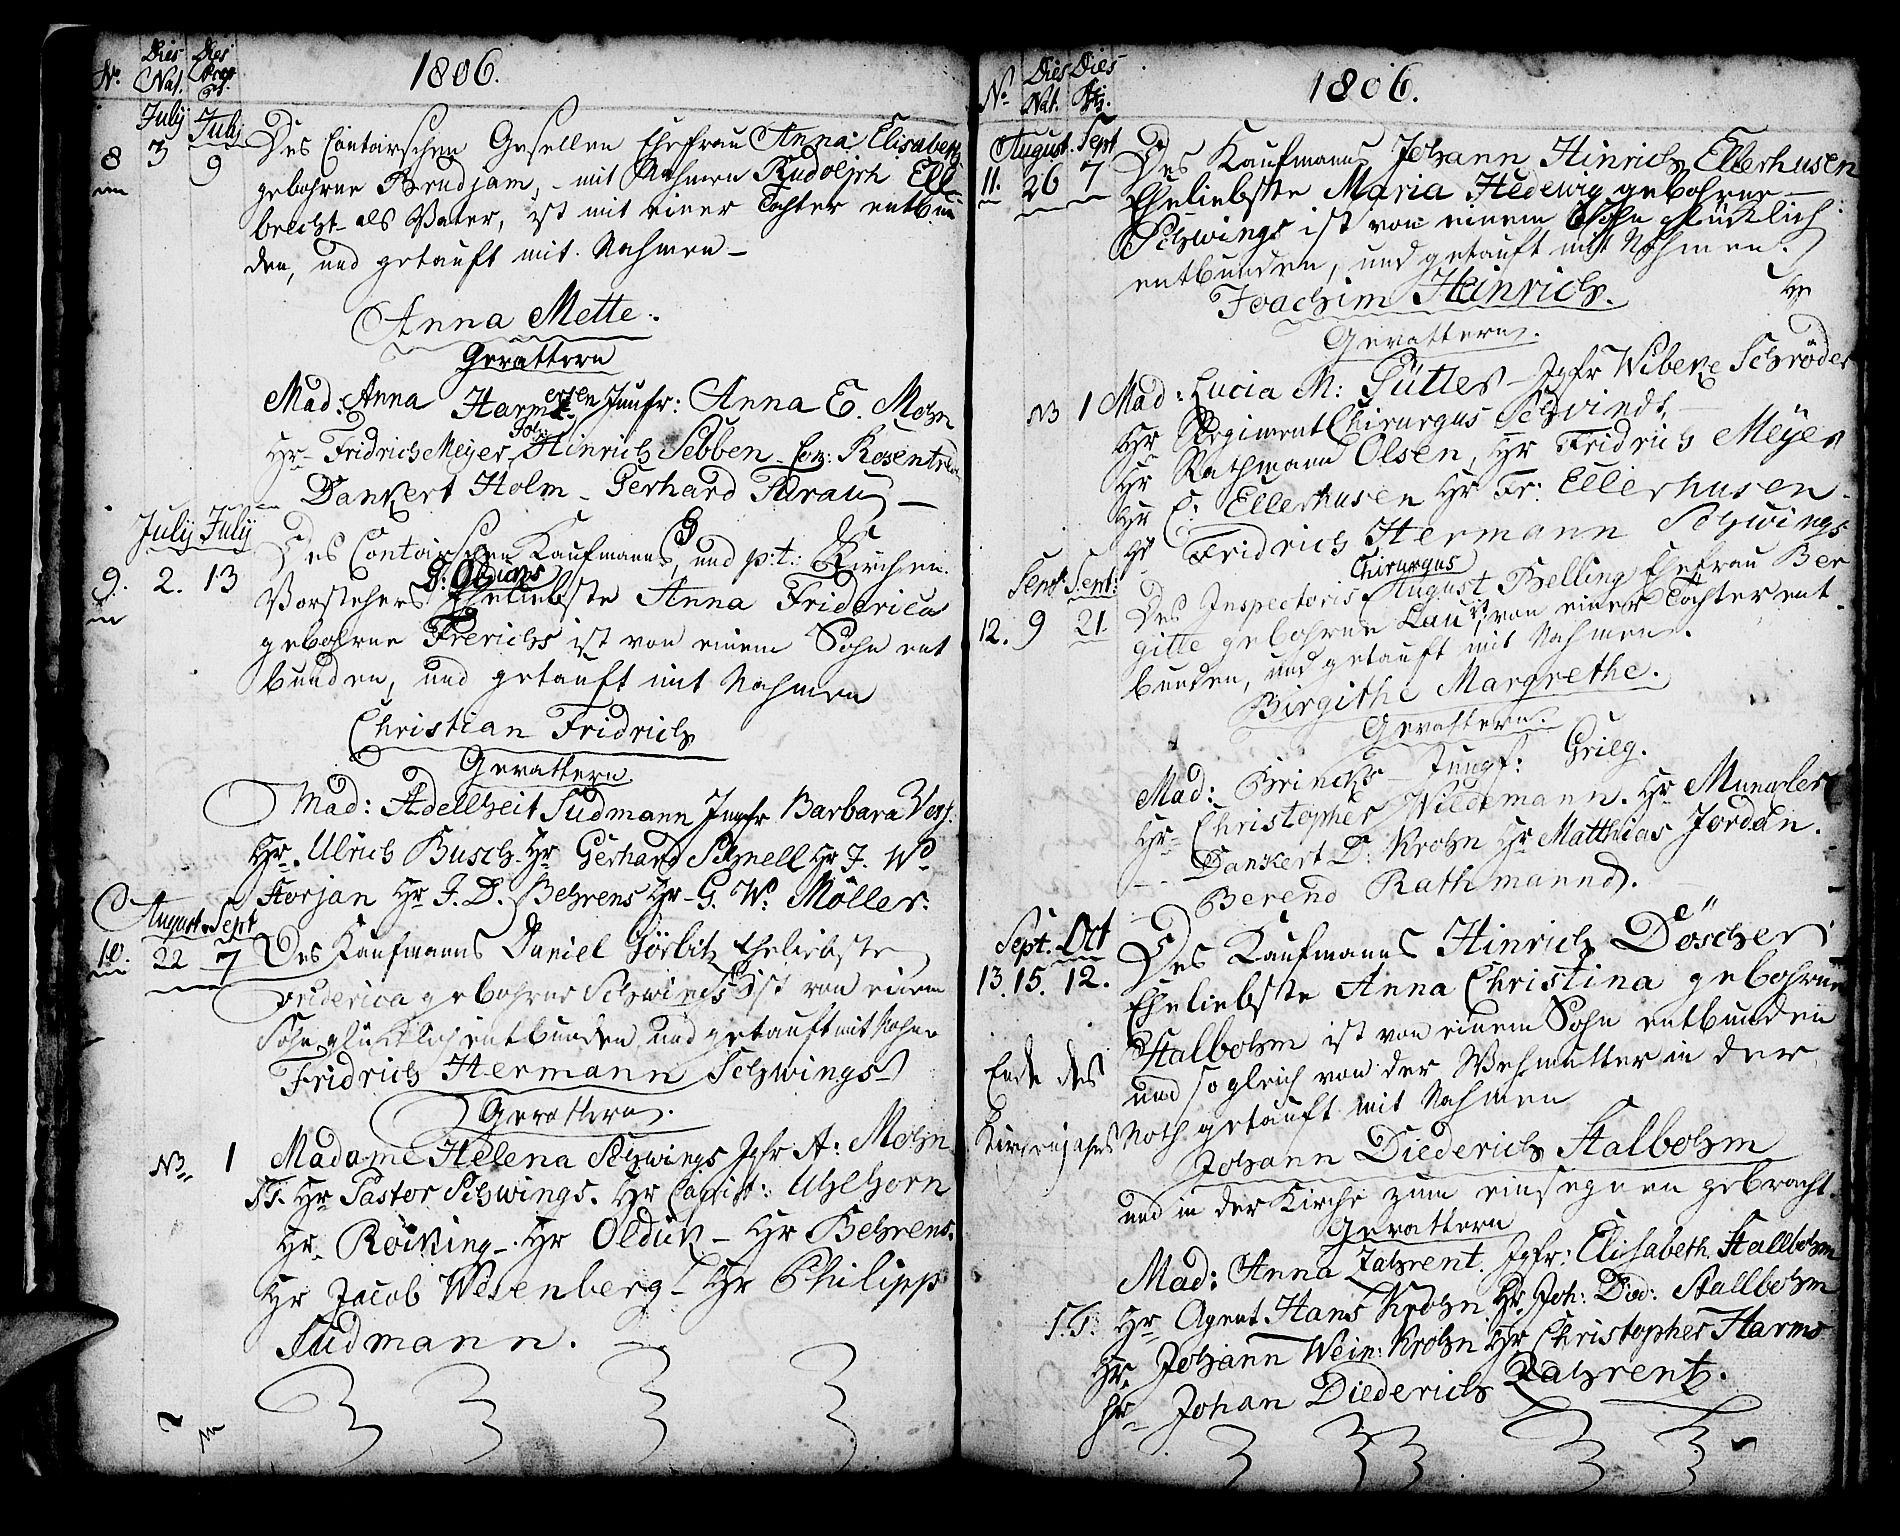 No. Dies Nat. Dies 1806.
July July
8 3 9 Des Contoirschen Gesellen Ehefrau Anna Elisabeth
gebohrne Brudjam, - mit Nahmen Rudolph Ell-
brecht als Vater, ist mit einer Tochter entbun
den, und getauft mit Nahmen -
Anna Mette.
Gevattern
Mad: Anna Harmersen Junfr: Anna E. Mohn
Hr Fridrich Meyer, Joh: Hinrich Sebben
Dankert Holm - Gerhard
July July
9. 2. 13 Des Contoirschen Kaufmanns, und p:t: Kirchen
Vorstehers Eheliebste Anna Friderica
gebohrne Frerichs ist von einem Sohn ent
bunden, und getauft mit Nahmen
Christian Fridrich
Gevattern
Mad: Adellheit Südmann Jngfr Barbara
Hr. Ulrich Busch - Hr Gerhard Schnell Hr J. W.
Forjan Hr J. D. Behrens Hr G. W. Möller.
August Sept
10. 22 7 Des Kaufmanns Daniel Görbitz Eheliebste
Friderica gebohrne Schwings ist von einem
Sohn glücklich entbunden und getauft mit Nahmen
Fridrich Hermann Schwings
Gevattern.
NB 1 Madame Helena Schwings Jgfr A: Mohn
S.T. Hr Pastor Schwings. Hr Uhlhorn
Hr Röiking - Hr Oldich - Hr Behrens.
Hr Jacob Wesenberg - Hr Philipp
Südmann.
No Dies Nat. Dies 1806.
August. Sept
11. 26 7 Des Kaufmanns Johann Hinrich Ellerhusen
Eheliebste Maria Hedewig gebohrne -
Schwings ist von einem Sohn glücklich
entbunden, und getauft mit Nahmen.
Joachim Heinrich.
Gevattern.
NB 1 Mad: Lucia M: Jgfr Wibeke Schröder
Hr Regiment Chirurgus Schvindt
Hr Rathmann Olsen, Hr Fridrich Meyer
Hr C: Ellerhusen Hr Fr: Ellerhusen.
Hr Fridrich Hermann Schwings
Sept. Sept: Chirurgus
12. 9 21. Des Inspectoris August Belling Ehefrau Ber
gitte gebohrne von einer Tochter ent
bunden, und getauft mit Nahmen.
Birgithe Margrethe.
Gevattern.
Mad: Brincks - Jungf: Grieg.
Hr Christopher Wildemann. Hr
Dankert D: Krohn Hr Matthias Jordan.
Berend Rathmannd.
Sept. Oct
13. 15. 12. Des Kaufmanns Hinrich Döscher
Eheliebste Anna Christina gebohrne
Stalbohm ist von einem Sohn entbunden
Ende des und sogleich von der Wehmutter in der
Kirchenjahrs Noth getauft mit Nahmen
Johann Diederich Stalbohm
und in der Kirche zum einsegnen gebracht.
Gevattern
Mad: Anna Zahrent. Jgfr: Elisabeth Stallbohm
S.T. Hr Agent Hans Krohn. Hr Joh: Died: Stallbohm
Hr. Johann Wein: Krohn Hr Christopher Harms
Hr Johan Diederich Zahrentz.